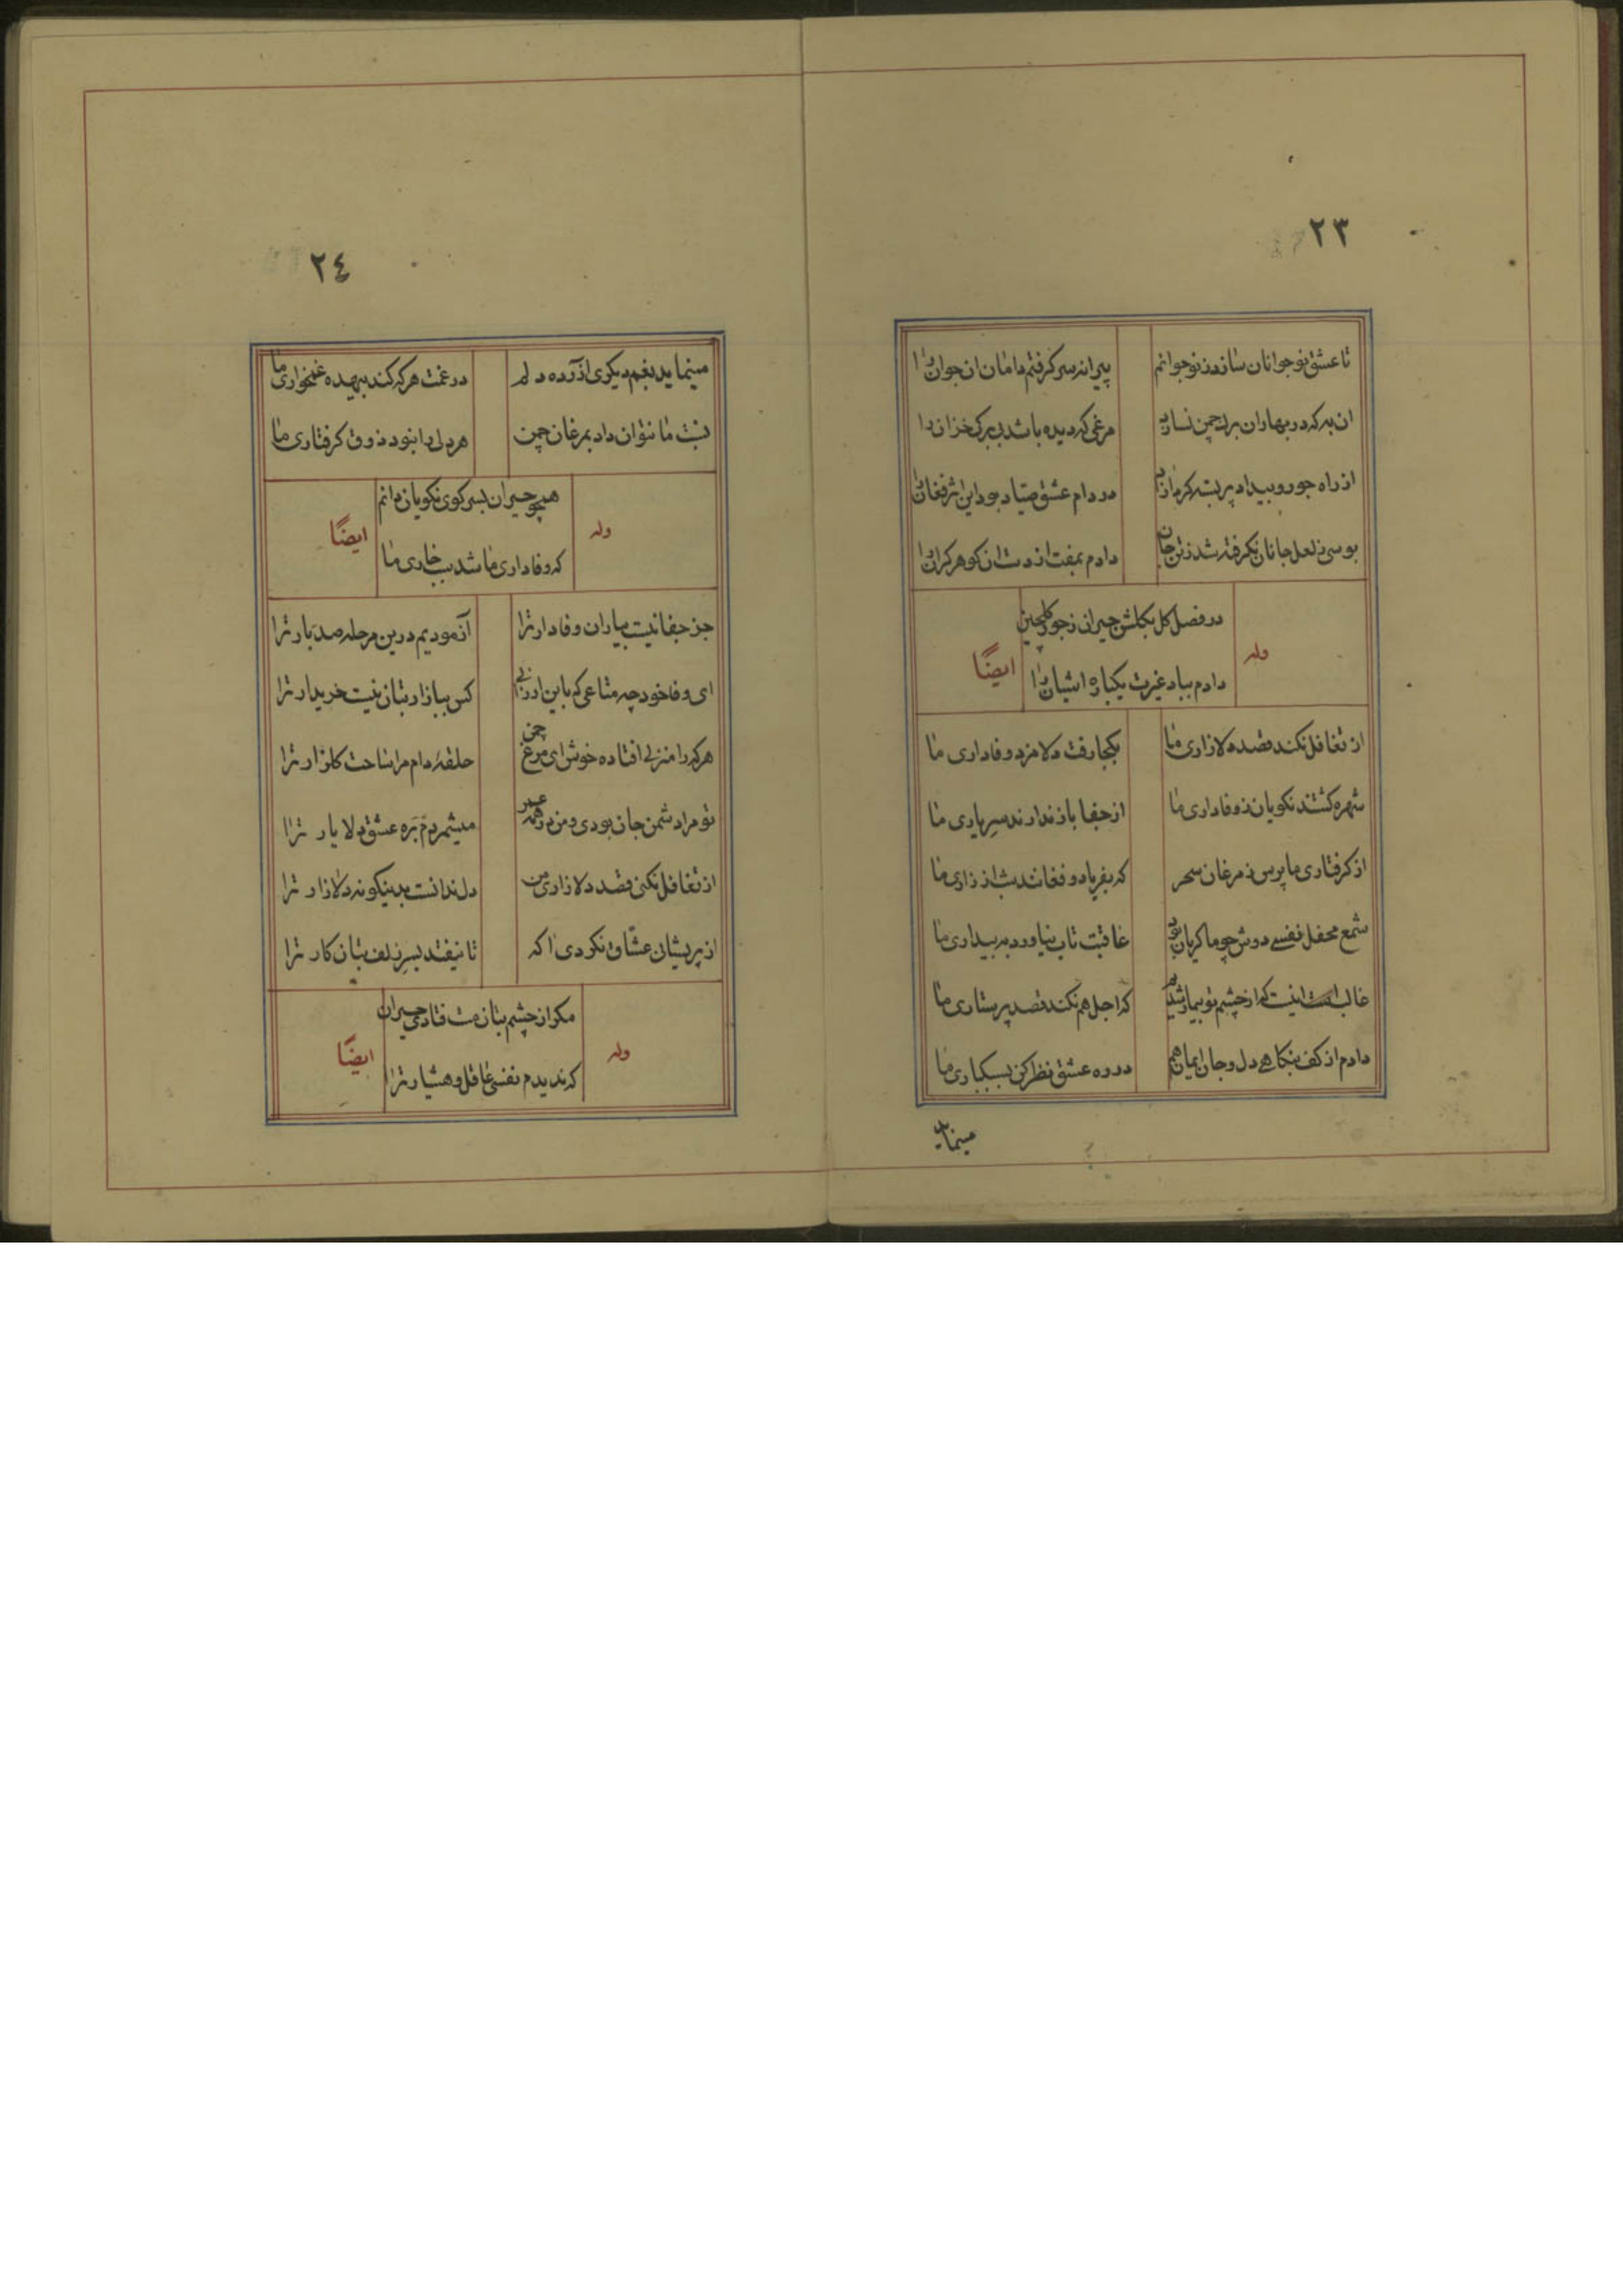 ٢٣
تا عشق نوجوانان سازد ز نو جوانم
پیرانه سر کرفتم دامان ان جوان را
ان به که در بهاران بر چمن نساید
مرغی که دیده باشد بی برکی خزان را
از راه جور و بیداد پر بسته کرد ازاد
در دام عشق صیاد بود این اثر فغان را
بوسی ز لعل جانان نکرفته شد ز تن جان
دادم بمفت از دست ان کوهر کران را
وله
در فصل کل بکلشن حیران ز جور کلچین
دادم بباد غیرت یکباره اشیان را
ایضًا
از تغافل نکند قصد دلازاری ما
بکجا رفت دلا مزد وفاداری ما
شهره کشتند نکویان ز وفاداری ما
از جفا باز ندارند سر یاری ما
از کرفتاری ما پرس ز مرغان سحر
که بفریاد و فغانند شب از زاری ما
شمع محفل نفسی دوش چو ما کریان بود
عاقبت تاب نیاورد به بیداری ما
غالب انست که از چشم تو بیمار شدیم
که اجل هم نکند قصد پرستاری ما
دادم از کف بنکاهی دل و جان ایمان هم
در ره عشق نظر کن بسبکباری ما
مینماید
٢٤
مینماید بغم دیکری ازرده دلم
در غمت هر که کند بیهده غمخواری ما
نسبت ما نتوان داد بمرغان چمن
هر دلی را نبود ذوق کرفتاری ما
وله
همچو حیران بسر کوی نکویان دانم
که وفاداری ما شد سبب خاری ما
ایضًا
جز جفا نیست بیاران وفادار ترا
آزمودیم درین مرحله صد بار ترا
ای وفا خود چه متاعی که باین ارزانی
کس ببازار بتان نیست خریدار ترا
هر که را منزلی افتاده خوش ای مرغ چمن
حلقهٔ دام مرا ساحت کلزار ترا
تو مرا دشمن جان بودی و من در همه عمر
میشمردم بره عشق دلا یار ترا
از تغافل نکنی قصد دلازاری من
دل ندانست بدینکونه دلازار ترا
از پریشانی عشاق نکردی اکه
تا نیفتد بسر زلف بتان کار ترا
وله
مکر از چشم بتان مست فتادی حیران
که ندیدم نفسی غافل و هشیار ترا
ایضًا